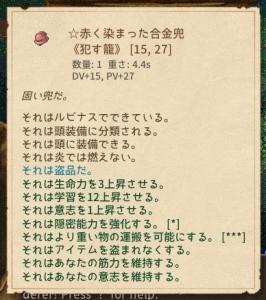 ☆赤く染まった合金兜
《犯す龍》 [15, 27]
数量: 1 重さ: 4.4s
DV+15, PV+27
固い兜だ。
それはルビナスでできている。
それは頭装備に分類される。
それは頭に装備できる。
それは炎では燃えない。
それは盗品だ。
それは生命力を3上昇させる。
それは学習を12上昇させる。
それは意志を1上昇させる。
それは隠密能力を強化する。 [*]
それはより重い物の運搬を可能にする。 [***]
それはアイテムを盗まれなくする。
それはあなたの筋力を維持する。
それはあなたの意志を維持する。
derer! Press '?' for help.